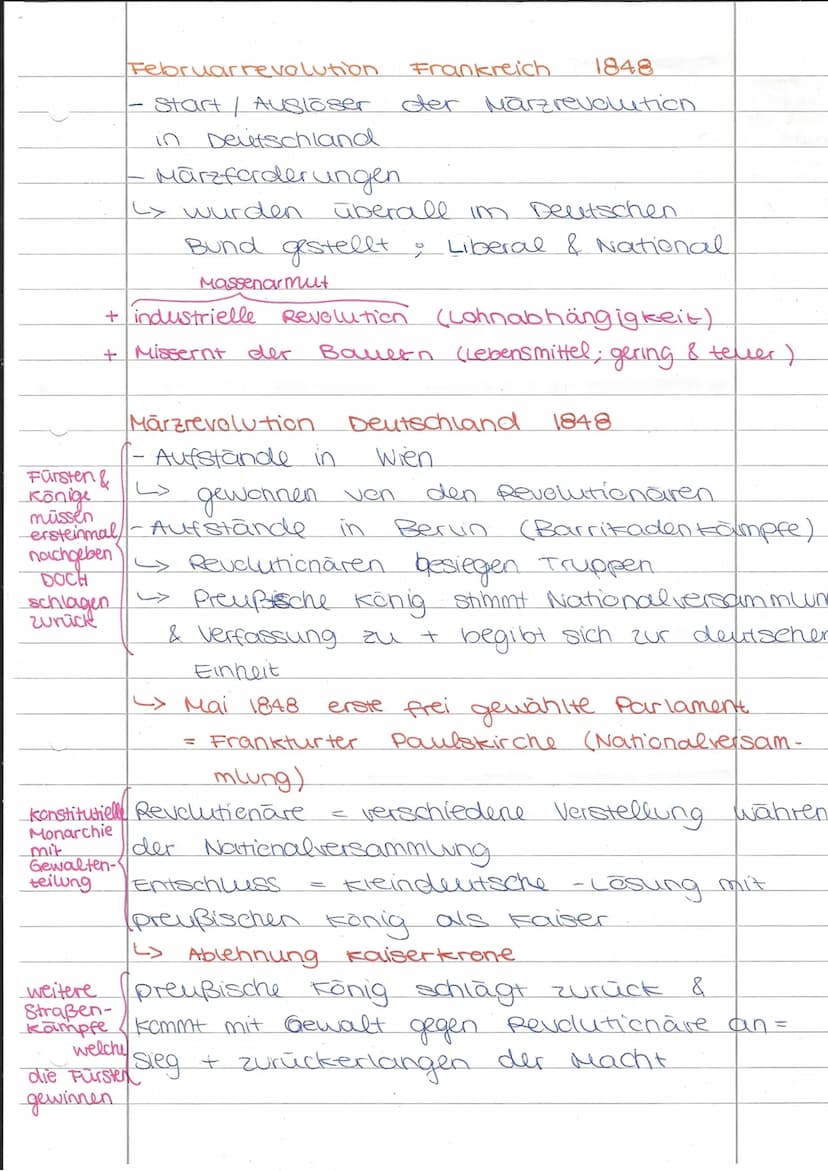 Februarrevolution Frankreich 1848
- Start / Auslöser der Märzrevolution
in Deutschland
- Märzforderungen
↳ wurden überall im Deutschen
Bund gestellt ; Liberal & National
Massenarmut
+ industrielle Revolution (Lohnabhängigkeit)
+ Missernt der Bauern (Lebensmittel; gering & teuer)
Märzrevolution Deutschland 1848
- Aufstände in Wien
↳ gewonnen von den Revolutionären
- Aufstände in Berlin (Barrikadenkämpfe)
↳ Revolutionären besiegen Truppen
↳ Preußische König stimmt Nationalversammlun
& Verfassung zu + begibt sich zur deutschen
Einheit
Fürsten &
Könige
müssen
ersteinmal
nachgeben
DOCH
schlagen
zurück
↳ Mai 1848 erste frei gewählte Parlament
= Frankturter Paulskirche (Nationalversam-
mlung)
Revolutionäre = verschiedene Vorstellung währen
der Nationalversammlung
Entschluss = kleindeutsche - Lösung mit
preußischen König als Kaiser
konstitutiell
Monarchie
mit
Gewalten-
teilung
↳ Ablehnung Kaiserkrone
preußische König schlägt zurück &
kommt mit Gewalt gegen Revolutionäre an =
Sieg + zurückerlangen der Macht
weitere
Straßen-
kämpfe
welche
die Fürsten
gewinnen